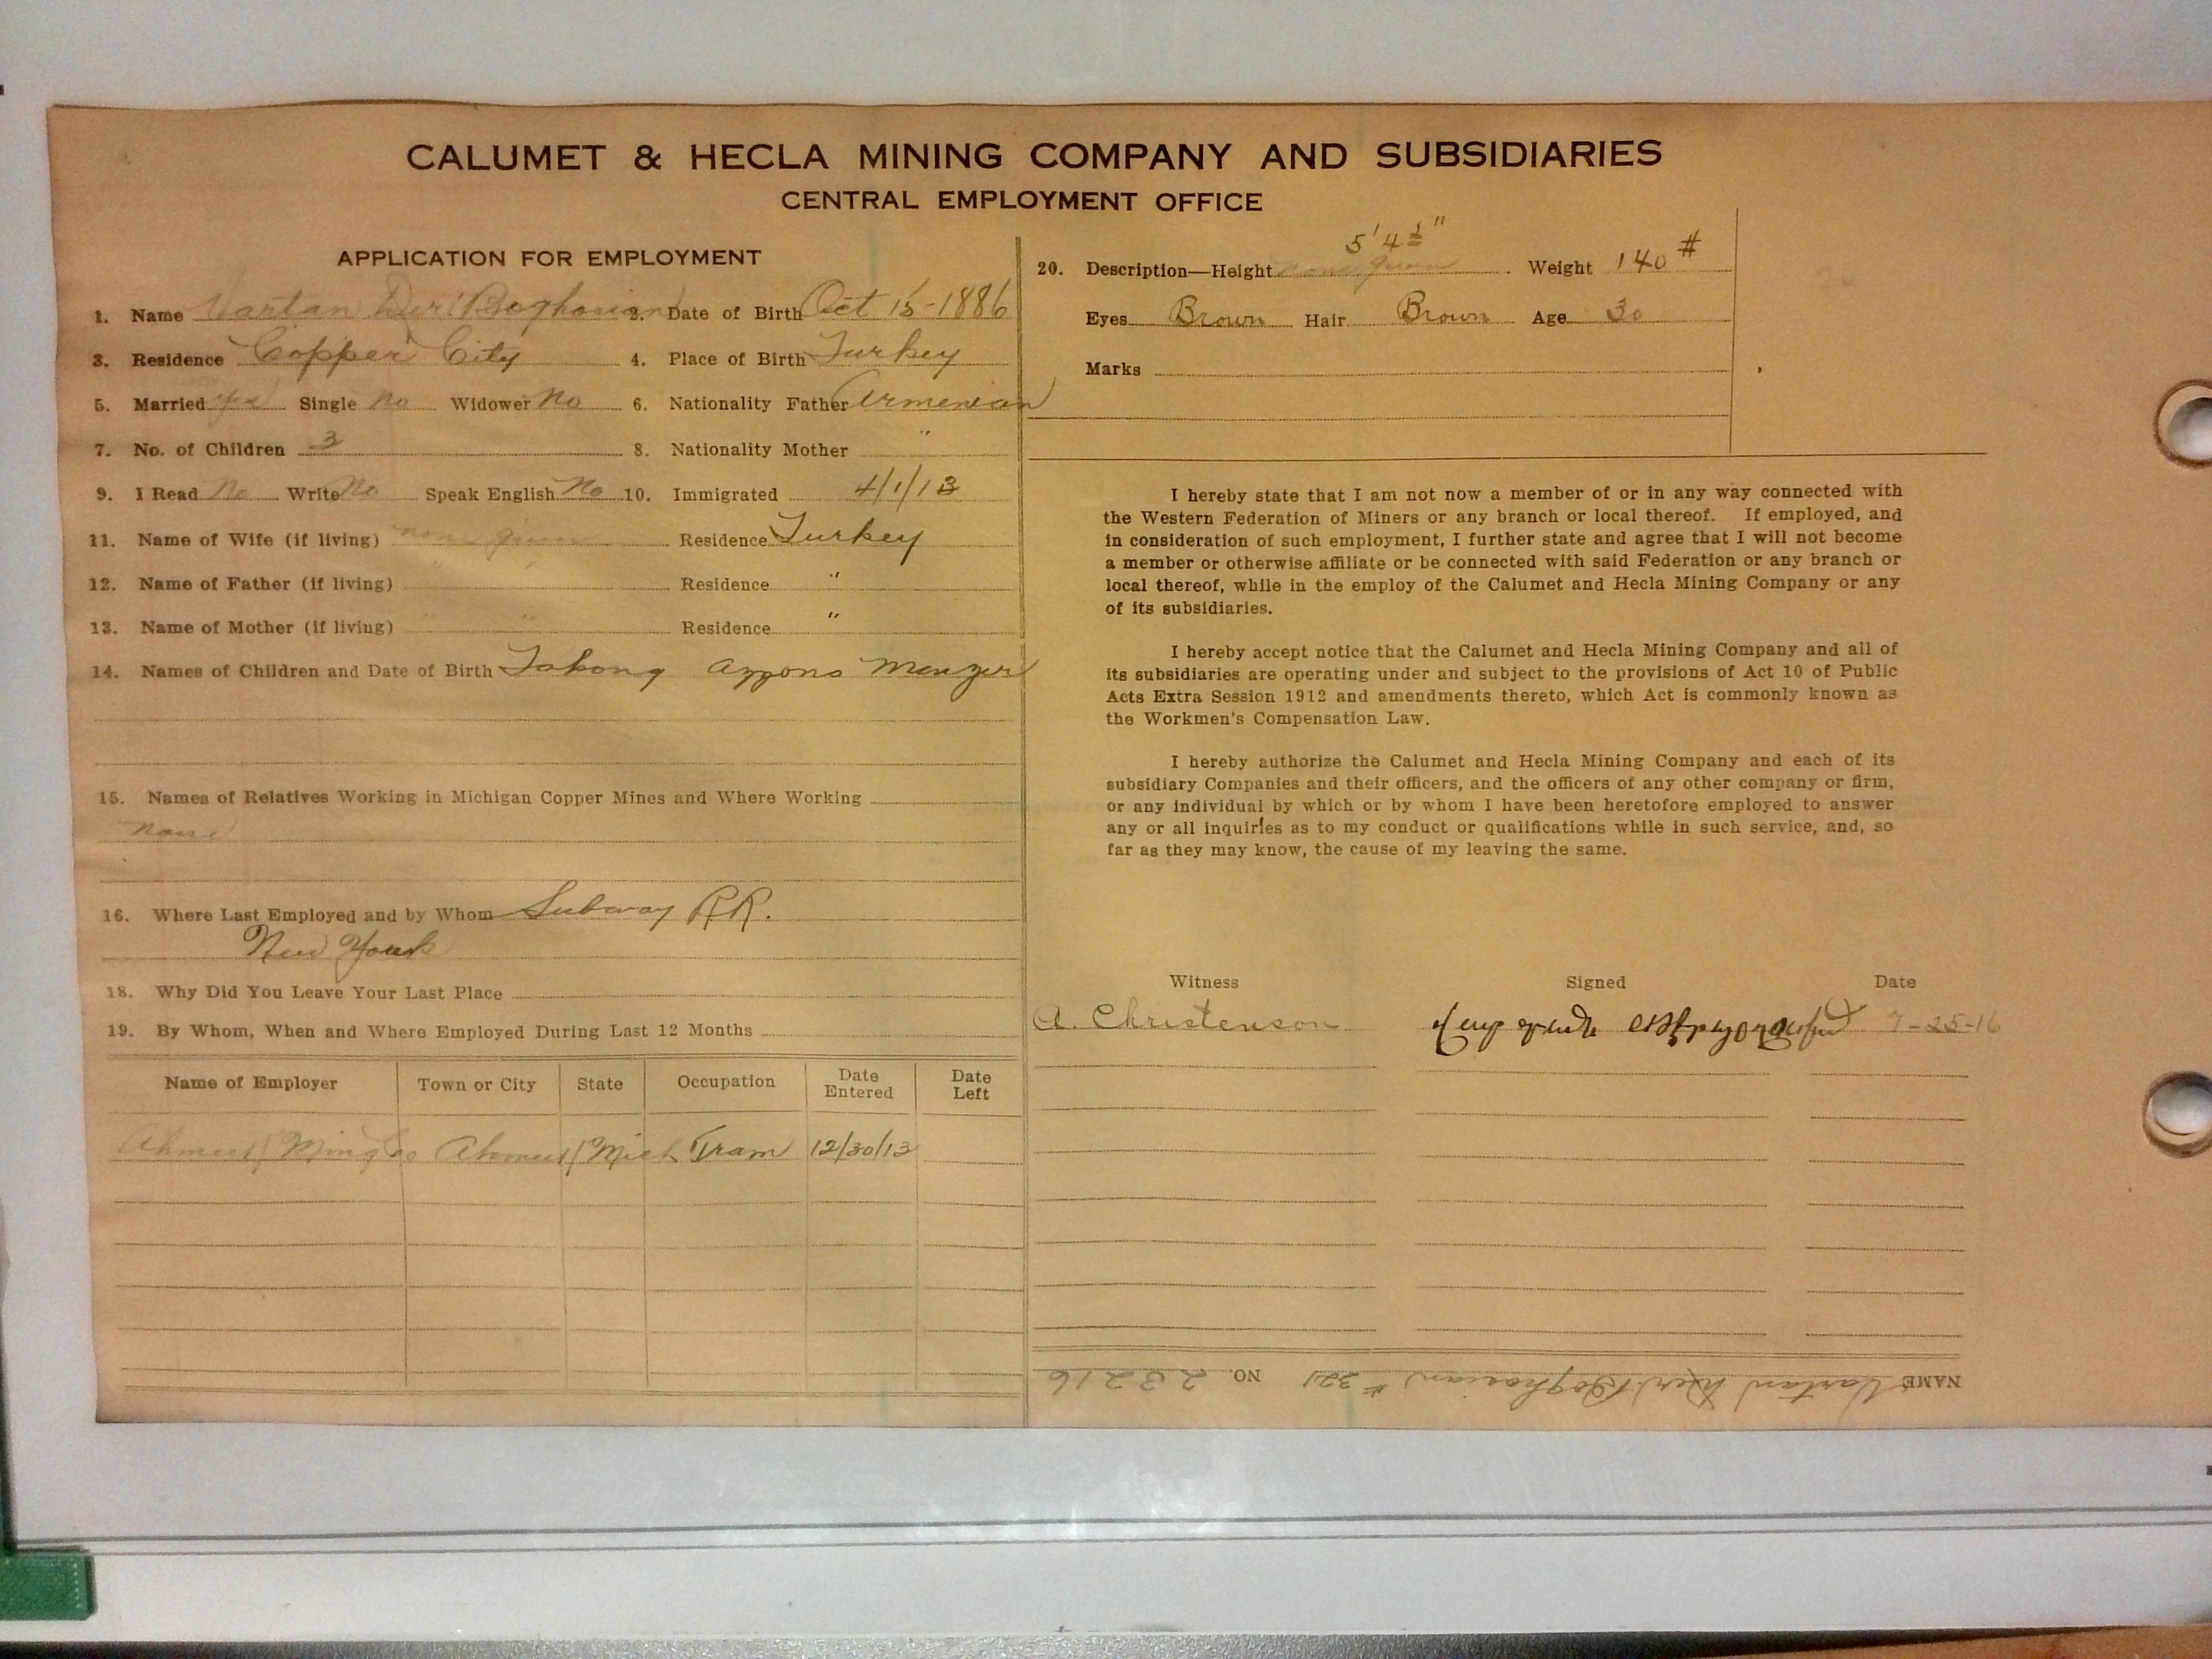 CALUMET & HECLA MINING COMPANY AND SUBSIDIARIES
CENTRAL EMPLOYMENT OFFICE
APPLICATION FOR EMPLOYMENT
1. Name Vartan Der Boghosian 2. Date of Birth Oct 15-1886
3. Residence Copper City 4. Place of Birth Turkey
5. Married yes Single No Widower No 6. Nationality Father Armenian
7. No. of Children 3 8. Nationality Mother "
9. I Read No Write No Speak English No 10. Immigrated 4/1/13
11. Name of Wife (if living) none given Residence Turkey
12. Name of Father (if living) " " Residence "
13. Name of Mother (if living) " " Residence "
14. Names of Children and Date of Birth
15. Names of Relatives Working in Michigan Copper Mines and Where Working
None
16. Where Last Employed and by Whom Subway RR.
New York
18. Why Did You Leave Your Last Place
19. By Whom, When and Where Employed During Last 12 Months
Name of Employer Town or City State Occupation Date Entered Date Left
Ahmeek Ming Co Ahmeek Mich Tram 12/30/13
20. Description—Height none given 5' 4 1/2" Weight 140 #
Eyes Brown Hair Brown Age 30
Marks
I hereby state that I am not now a member of or in any way connected with
the Western Federation of Miners or any branch or local thereof. If employed, and
in consideration of such employment, I further state and agree that I will not become
a member or otherwise affiliate or be connected with said Federation or any branch or
local thereof, while in the employ of the Calumet and Hecla Mining Company or any
of its subsidiaries.
I hereby accept notice that the Calumet and Hecla Mining Company and all of
its subsidiaries are operating under and subject to the provisions of Act 10 of Public
Acts Extra Session 1912 and amendments thereto, which Act is commonly known as
the Workmen's Compensation Law.
I hereby authorize the Calumet and Hecla Mining Company and each of its
subsidiary Companies and their officers, and the officers of any other company or firm,
or any individual by which or by whom I have been heretofore employed to answer
any or all inquiries as to my conduct or qualifications while in such service, and, so
far as they may know, the cause of my leaving the same.
Witness Signed Date
A. Christenson 7-25-16
NAME Vartan Der Boghosian # 321 NO. 23216